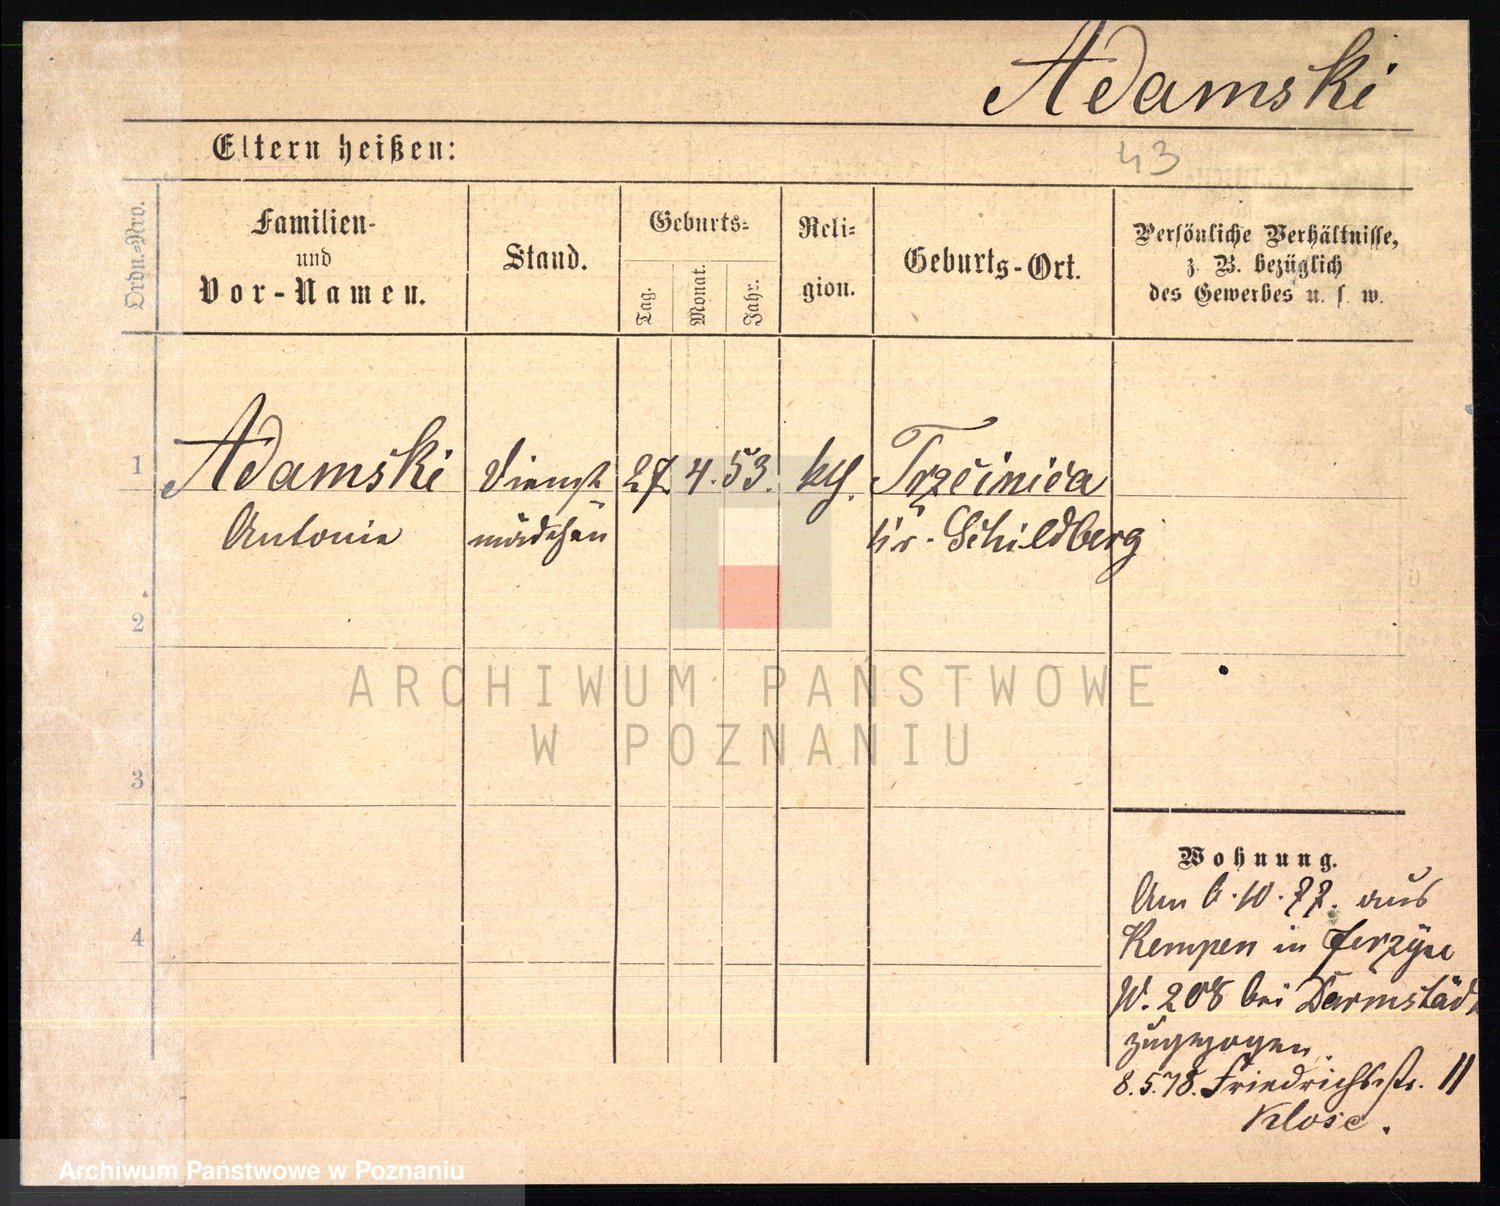 Adamski
43
Eltern heißen:
Ordn.-Nro.
Familien-
und
Vor-Namen.
Stand.
Geburts-
Tag.
Monat.
Jahr.
Reli-
gion.
Geburts-Ort.
Persönliche Verhältnisse,
z. B. bezüglich
des Gewerbes u. s. w.
1 Adamski Dienst 27. 4. 53. kth. Trzcinica
Antonie mädchen Kr. Schildberg
2
3
4
Wohnung.
Am 6.10.77. aus
Kempen in Jerzyce
W. 208 bei Darmstädt
zugezogen.
8.5.78. Friedrichsstr. 11
Klose.
ARCHIWUM PAŃSTWOWE
W POZNANIU
Archiwum Państwowe w Poznaniu